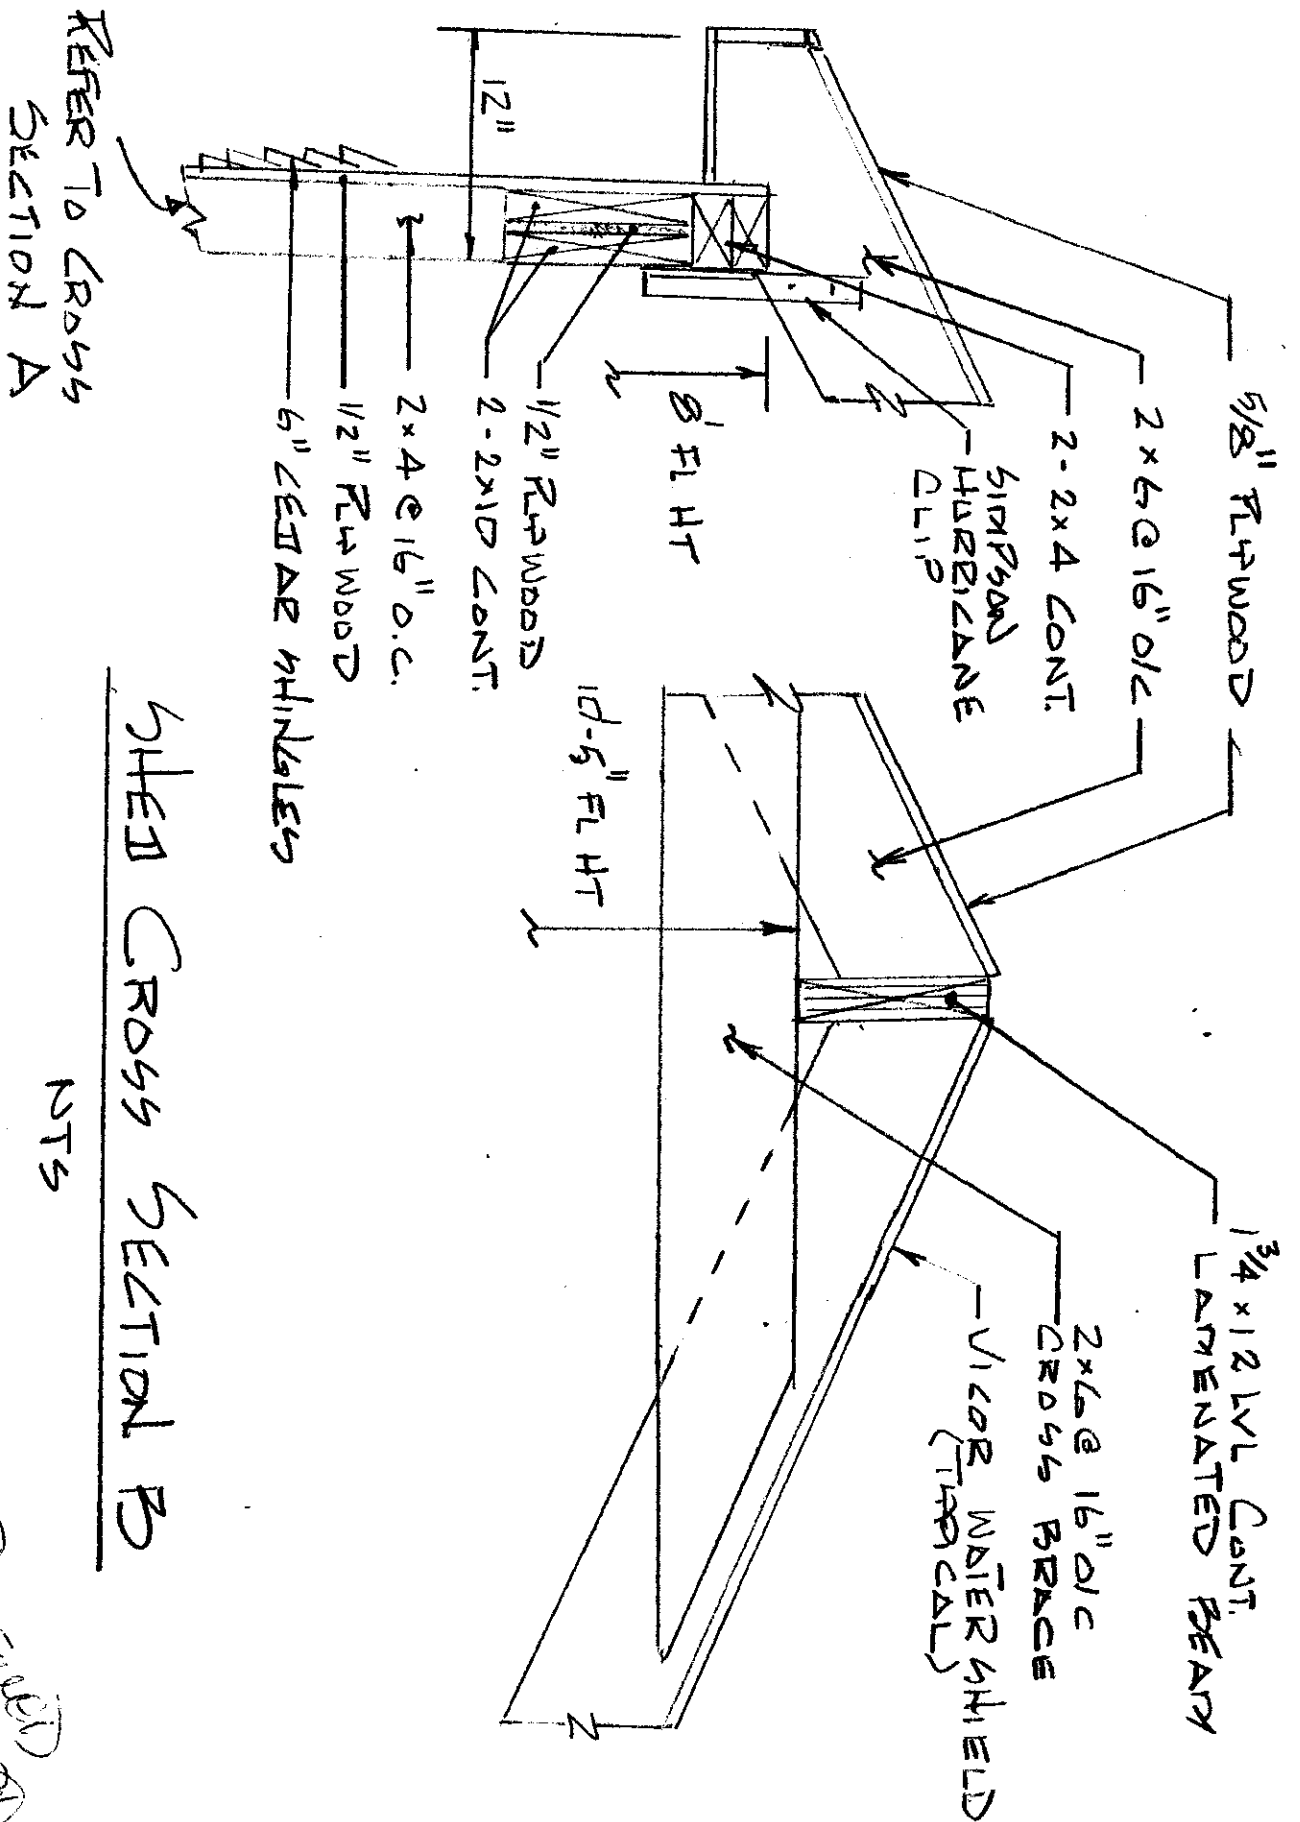 5/8" PLYWOOD
2x6@16" O/C
2-2x4 CONT.
SIMPSON
HURRICANE
CLIP
8' FL HT
1/2" PLYWOOD
2-2x10 CONT.
2x4@16" O.C.
1/2" PLYWOOD
6" CEDAR SHINGLES
12"
REFER TO CROSS
SECTION A
1 3/4 x 12 LVL CONT.
LAMENATED BEAM
2x6@16" O/C
CROSS BRACE
VICOR WATER SHIELD
(TYPICAL)
10'-5" FL HT
SHED CROSS SECTION B
NTS